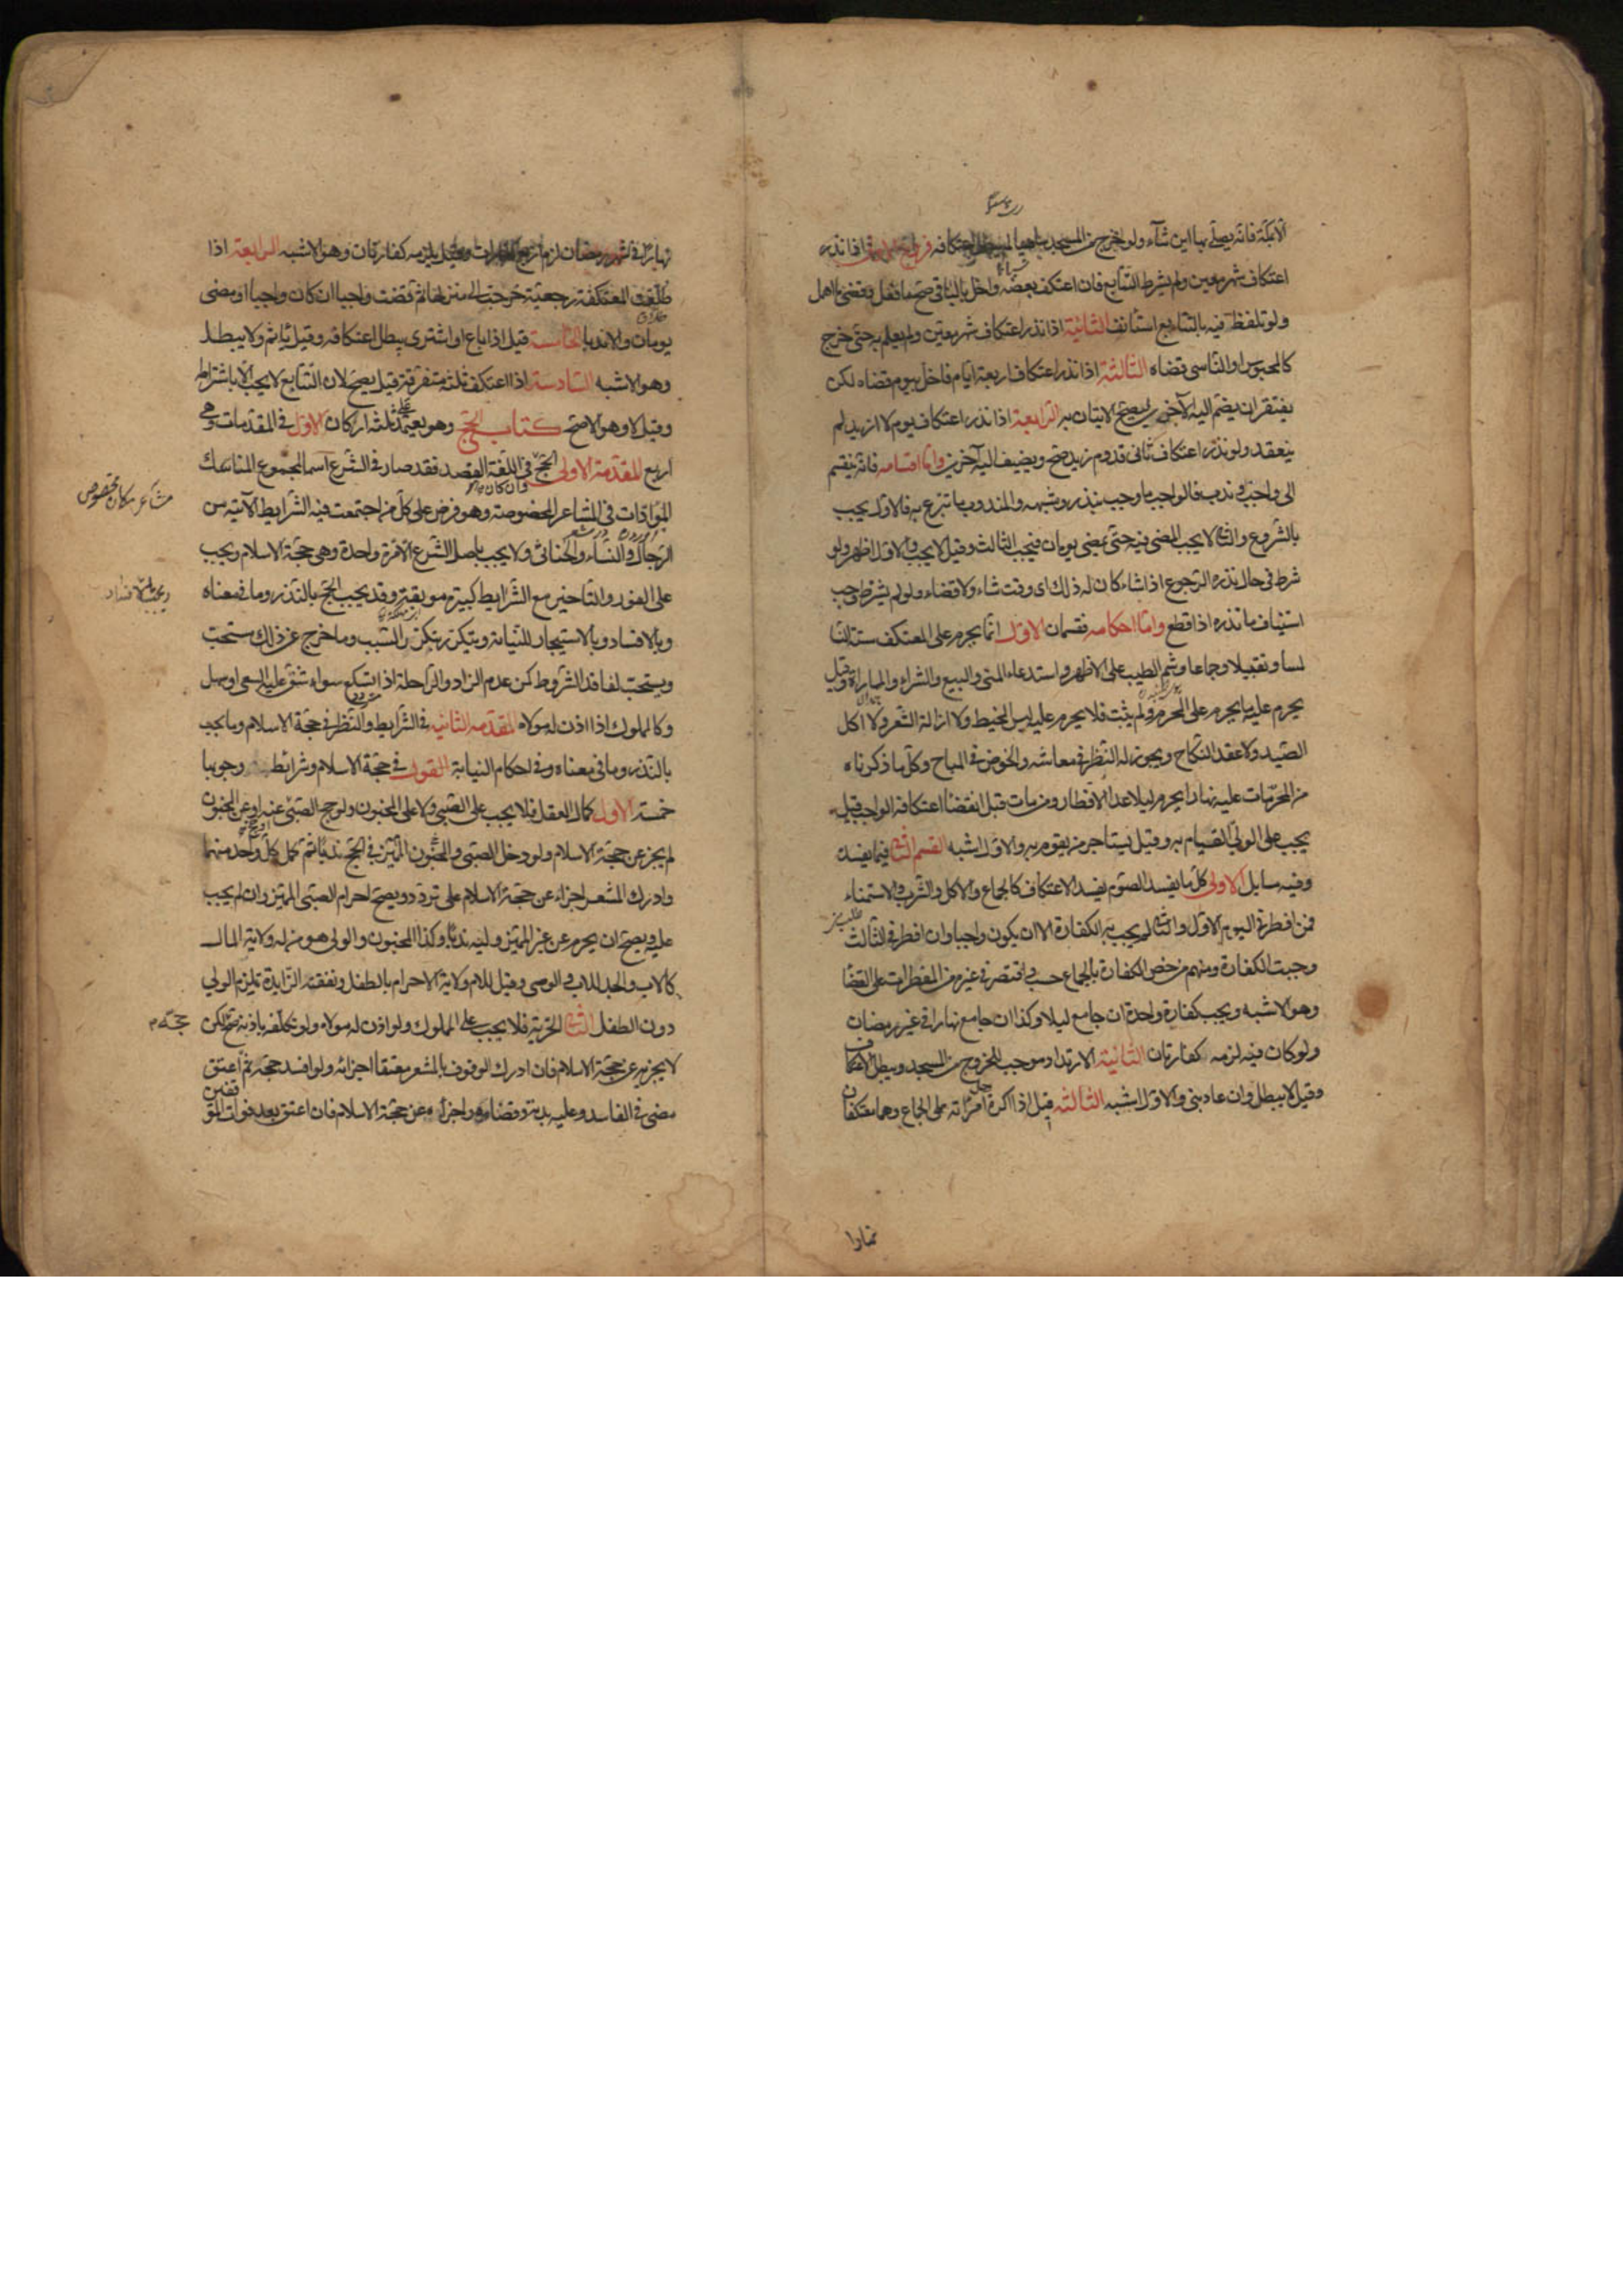 الا بمكة فانه يصلي بها اين شاء ولو خرج من المسجد ساهيا لم يبطل اعتكافه فروع الاول اذا نذر
اعتكاف شهر معين ولم يشرط التتابع فان اعتكف بعضه واخل بالباقي صح ما فعل وقضى ما اهمل
ولو تلفظ فيه بالتتابع استأنف الثانية اذا نذر اعتكاف شهر معين ولم يعلم به حتى خرج
كالمحبوس او الناسي قضاه الثالثة اذا نذر اعتكاف اربعة ايام فاخل بيوم قضاه لكن
يفتقر ان يضم اليه الآخرين ليصح الاتيان به الرابعة اذا نذر اعتكاف يوم لا ازيد لم
ينعقد ولو نذر اعتكاف ثاني قدوم زيد صح ويضيف اليه آخرين واما اقسامه فانه ينقسم
الى واجب وندب فالواجب ما وجب بنذر وشبهه والمندوب ما تبرع به فالاول يجب
بالشروع والثاني لا يجب المضي فيه حتى يمضي يومان فيجب الثالث وقيل لا يجب والاول اظهر ولو
شرط في حال نذره الرجوع اذا شاء كان له ذلك اى وقت شاء ولا قضاء ولو لم يشترط وجب
استيناف ما نذره اذا قطع واما احكامه فقسمان الاول انما يحرم على المعتكف ستة النسا
لمسا وتقبيلا وجماعا وشم الطيب على الاظهر واستدعاء المني والبيع والشراء والمماراة وقيل
يحرم عليه ما يحرم على المحرم ولم يثبت فلا يحرم عليه لبس المخيط ولا ازالة الشعر ولا اكل
الصيد ولا عقد النكاح ويجوز له النظر في معاشه والخوض في المباح وكل ما ذكرناه
من المحرمات عليه نهارا يحرم ليلا عدا الافطار ومن مات قبل انقضاء اعتكافه الواجب قيل
يجب على الولي القيام به وقيل يستاجر من يقوم به والاول اشبه القسم الثاني فيما يفسده
وفيه مسايل الاولى كل ما يفسد الصوم يفسد الاعتكاف كالجماع والاكل والشرب والاستمناء
فمن افطر في اليوم الاول والثاني لم يجب به الكفارة الا ان يكون واجبا وان افطر في الثالث
وجبت الكفارة ومنهم من خص الكفارة بالجماع حسب واقتصر في غيره من المفطرات على القضا
وهو الاشبه ويجب كفارة واحدة ان جامع ليلا وكذا ان جامع نهارا في غير رمضان
ولو كان فيه لزمه كفارتان الثانية الارتداد موجب للخروج من المسجد ويبطل الاعتكاف
وقيل لا يبطل وان عاد بنى والاول اشبه الثالثة قيل اذا اكره امرأته على الجماع وهما معتكفان
نهارا
نهارا في شهر رمضان لزمه اربع كفارات وقيل يلزمه كفارتان وهو الاشبه الرابعة اذا
طلقت المعتكفة رجعية خرجت الى منزلها ثم قضت واجبا ان كان واجبا او مضى
يومان والا ندبا الخامسة قيل اذا باع او اشترى يبطل اعتكافه وقيل ياثم ولا يبطل
وهو الاشبه السادسة اذا اعتكف ثلثة متفرقة قيل يصح لان التتابع لا يجب الا باشتراط
وقيل لا وهو الاصح كتاب الحج وهو يعتمد على ثلثة اركان الاول في المقدمات وهي
اربع المقدمة الاولى الحج وان كان في اللغة القصد فقد صار في الشرع اسما لمجموع المناسك
المؤدات في المشاعر المخصوصة وهو فرض على كل من اجتمعت فيه الشرايط الآتية من
مشاعر مكان مخصوص
الرجال والنساء والخناثى ولا يجب باصل الشرع الا مرة واحدة وهي حجة الاسلام ويجب
على الفور والتاخير مع الشرايط كبيرة موبقة وقد يجب الحج بالنذر وما في معناه
وبالافساد وبالاستيجار للنيابة ويتكرر بتكرر السبب وما خرج عن ذلك مستحب
ويستحب لفاقد الشروط كمن عدم الزاد والراحلة اذا تسكع سواء شق عليه السعي او سهل
وكالمملوك اذا اذن له مولاه المقدمه الثانيه في الشرايط والنظر في حجة الاسلام وما يجب
بالنذر وما في معناه وفي احكام النيابة القول في حجة الاسلام وشرائط وجوبها
خمسة الاول كمال العقل فلا يجب على الصبي ولا على المجنون ولو حج الصبي عنه او عن المجنون
لم يجز عن حجة الاسلام ولو دخل الصبي والمجنون المميز في الحج ندبا ثم كمل كل واحد منهما
وادرك المشعر اجزاء عن حجة الاسلام على تردد ويصح احرام الصبي المميز وان لم يجب
عليه ويصح ان يحرم عن غير المميز وليه ندبا وكذا المجنون والولي هو من له ولاية المال
كالاب والجد للاب والوصي وقيل للام ولاية الاحرام بالطفل ونفقته الزايدة تلزم الولي
دون الطفل الثاني الحرية فلا يجب على المملوك ولو اذن له مولاه ولو تكلفه باذنه صح حجه لكن
لا يجزيه عن حجة الاسلام فان ادرك الوقوف بالمشعر معتقا اجزائه ولو افسد حجه ثم اعتق
مضى في الفاسد وعليه بدنة وقضاه واجزأه عن حجة الاسلام فان اعتق بعد فوات الموقفين